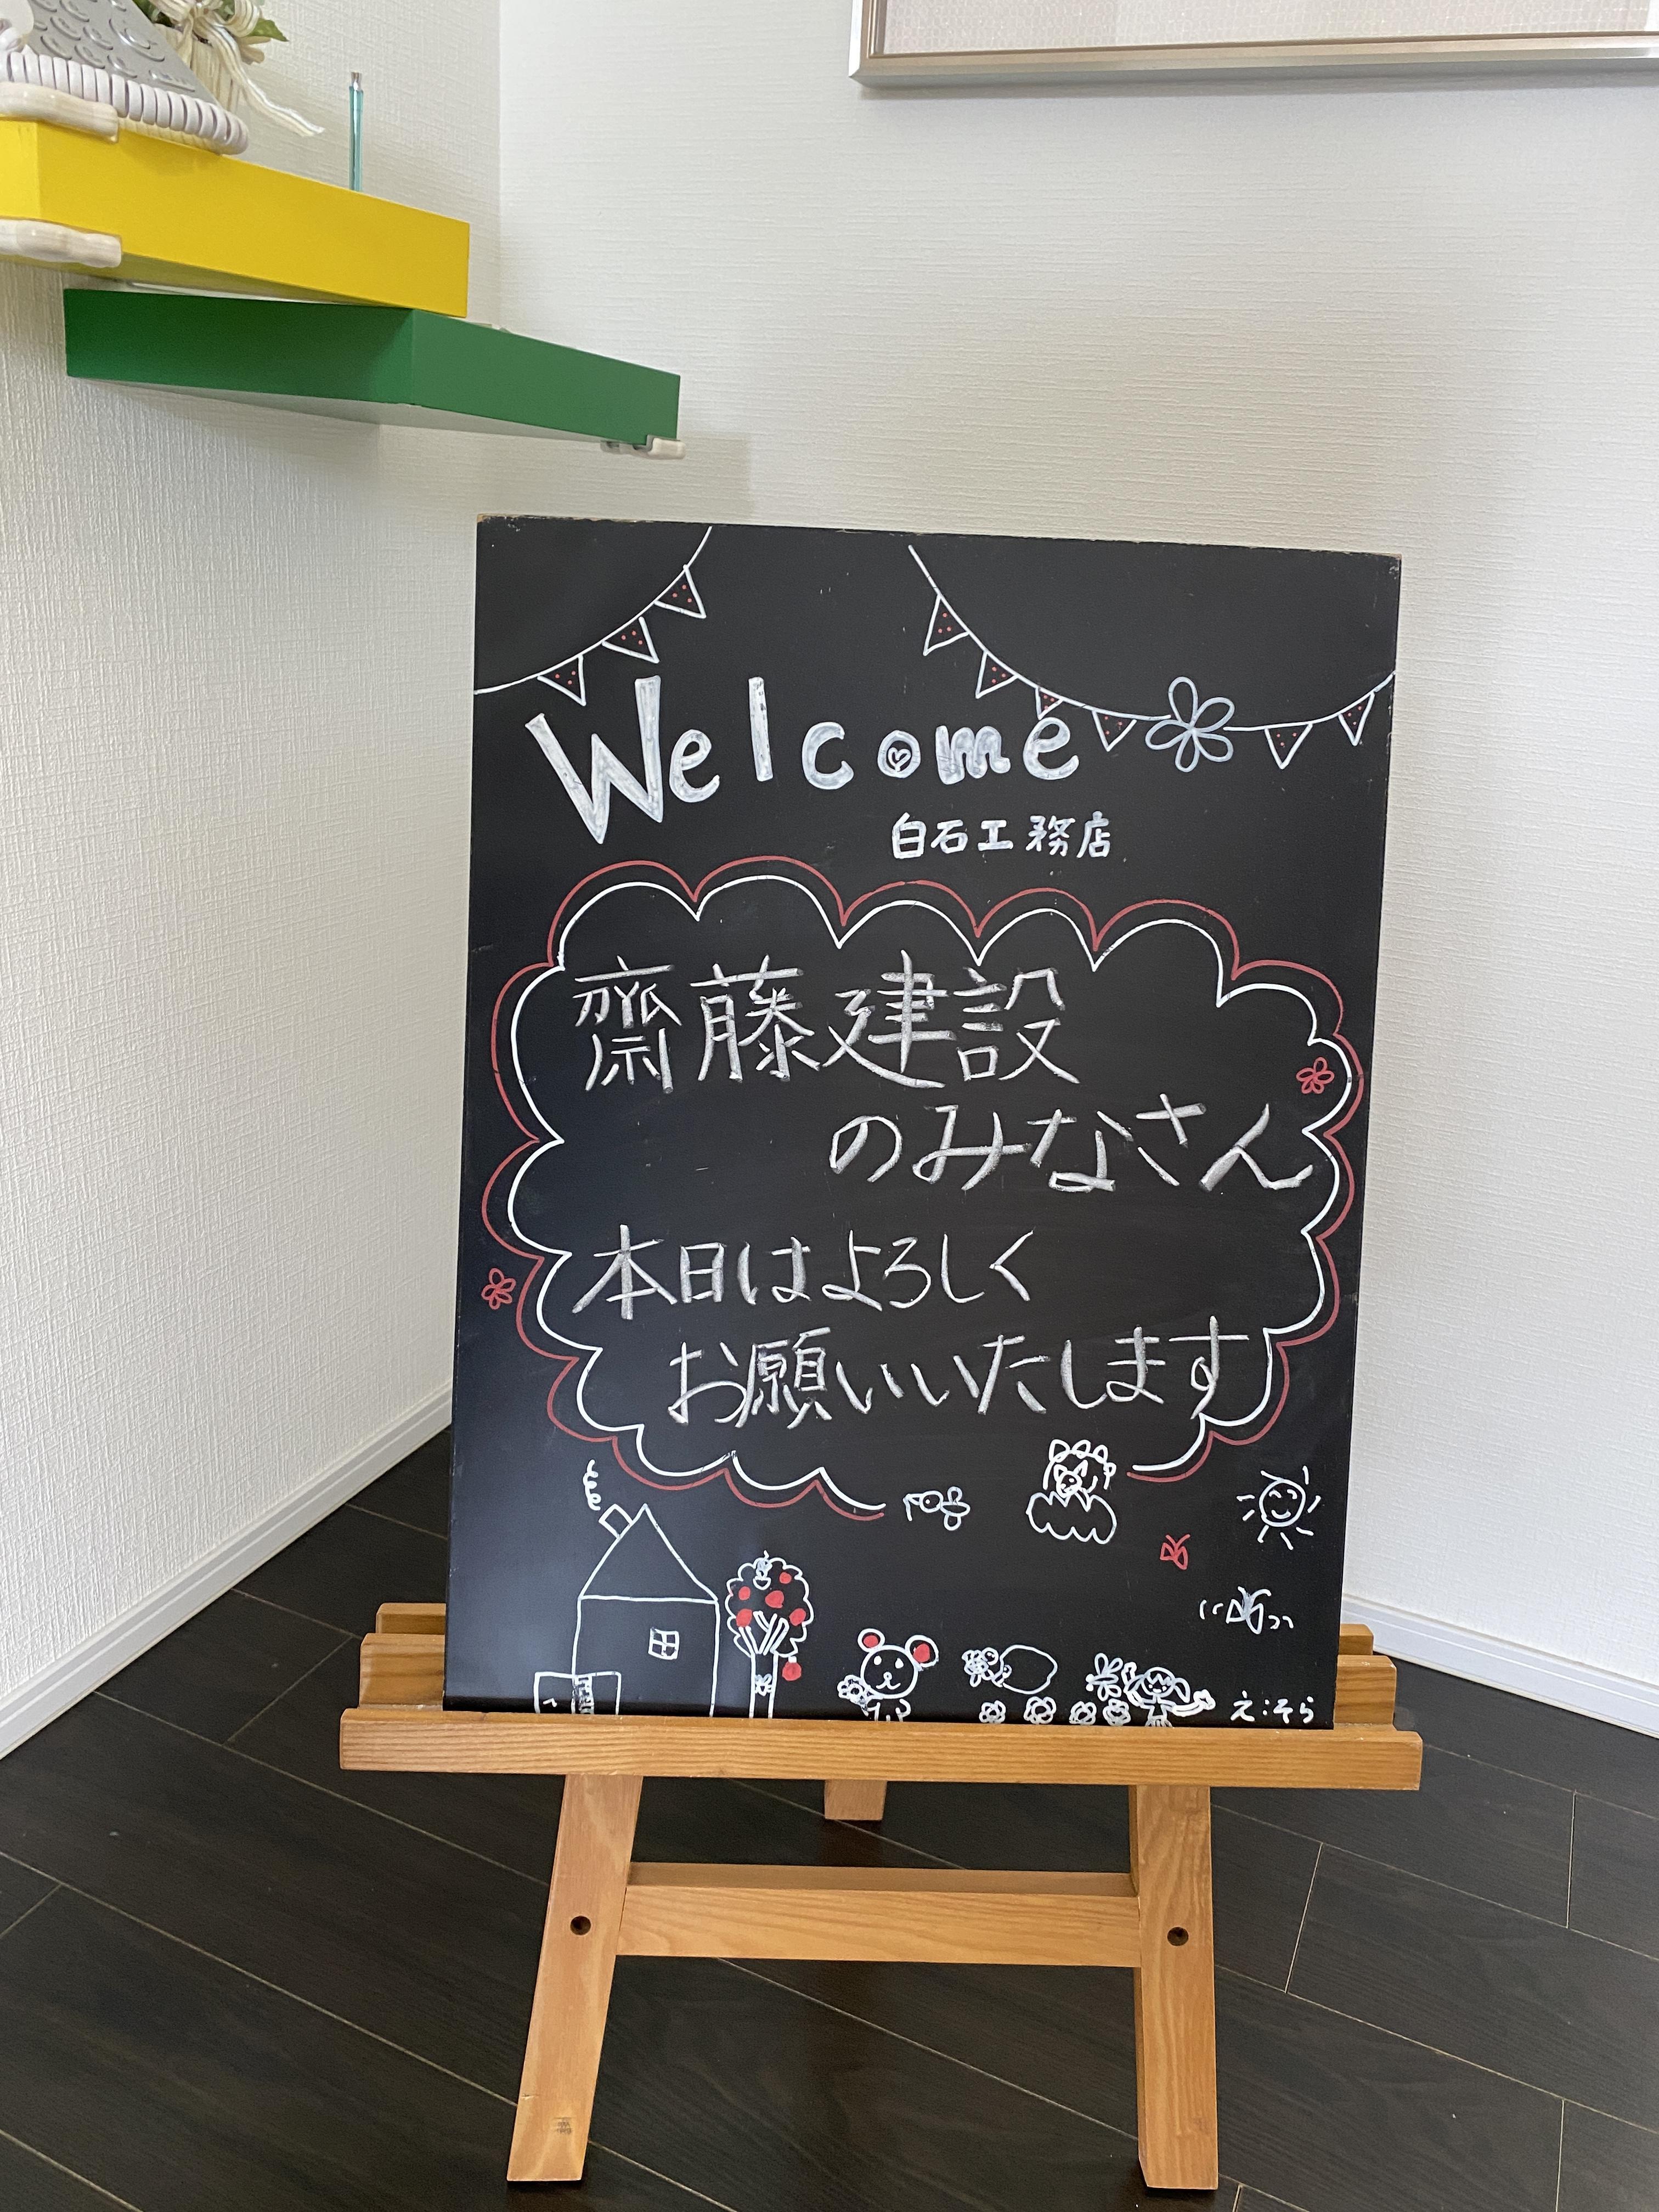 Welcome
白石工務店
齋藤建設
のみなさん
本日はよろしく
お願いいたします
え:そら